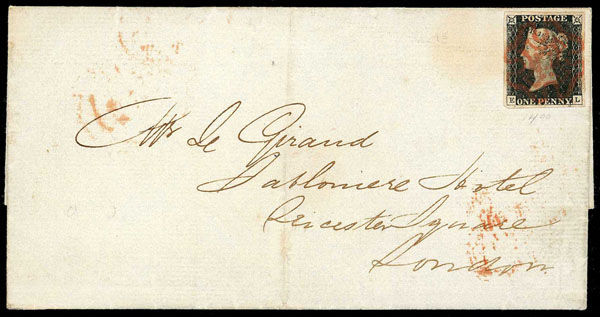 POSTAGE
E ONE PENNY L
1400
Mr Le Girand
Sabloniere Hotel
Leicester Square
London